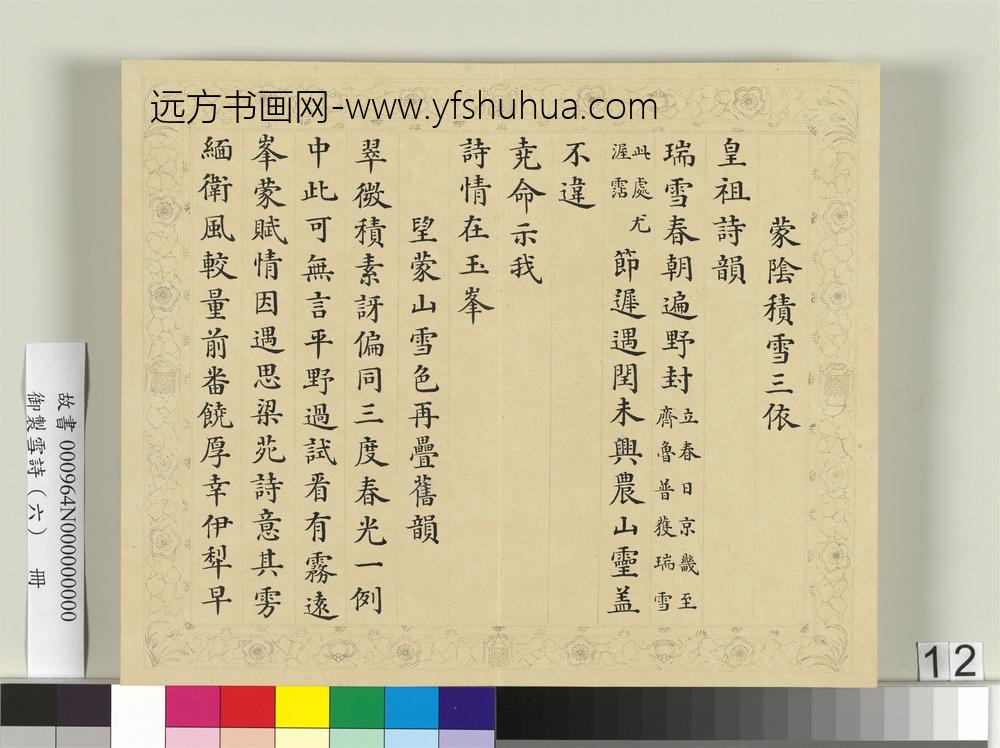 远方书画网-www.yfshuhua.com
蒙陰積雪三依
皇祖詩韻
瑞雪春朝遍野封
立春日京畿至
齊魯普獲瑞雪
此處尤
渥霑
節遲遇閏未興農山靈盖
不違
尭命示我
詩情在玉峯
望蒙山雪色再疊舊韻
翠微積素訝偏同三度春光一例
中此可無言平野過試看有霧遠
峯蒙賦情因遇思梁苑詩意其雱
緬衛風較量前番饒厚幸伊犁早
故書 000964N000000000
御製雪詩（六） 冊
12